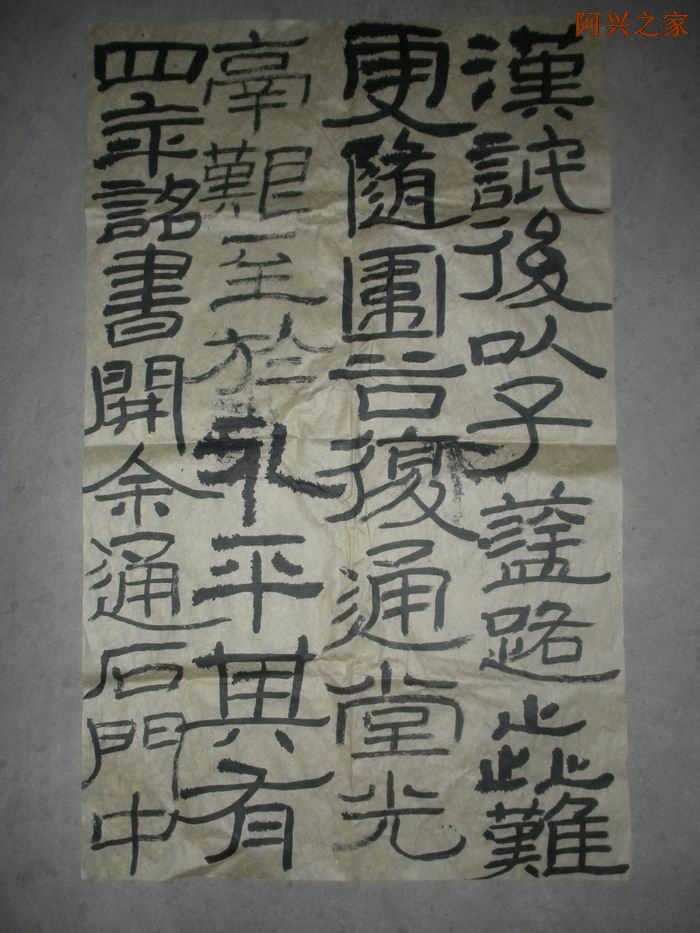 漢詆後以子路歮難
更隨圍谷復通堂光
艱至於永平其有
四年詔書開余通石門中
阿兴之家